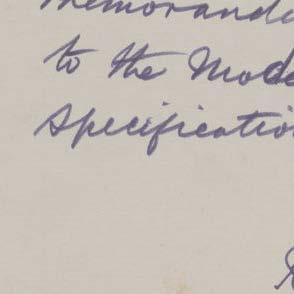 Memoranda
to the Mode
Specificatio